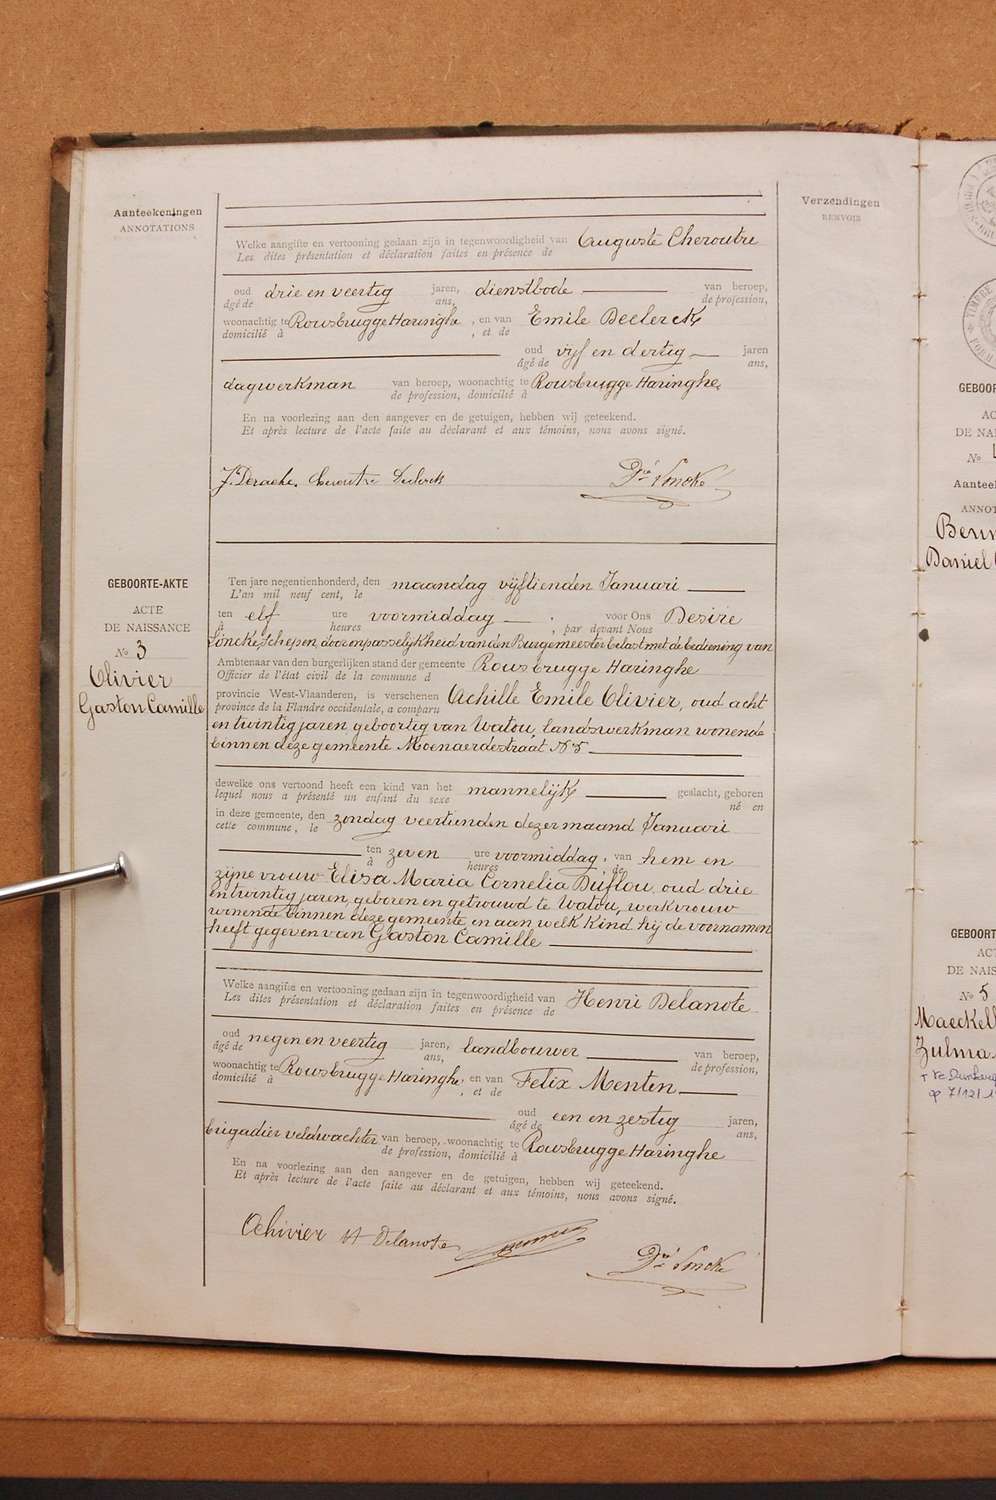 Aanteekeningen
ANNOTATIONS
Verzendingen
RENVOIS
Welke aangifte en vertooning gedaan zijn in tegenwoordigheid van Auguste Cheroutre
Les dites présentation et déclaration faites en présence de
oud drie en veertig jaren, dienstbode van beroep,
âgé de ans, de profession,
woonachtig te Rousbrugge Haringhe, en van Emile Declerck
domicilié à , et de
oud vijf en dertig jaren
âgé de ans,
dagwerkman van beroep, woonachtig te Rousbrugge Haringhe,
de profession, domicilié à
En na voorlezing aan den aangever en de getuigen, hebben wij geteekend.
Et après lecture de l'acte faite au déclarant et aux témoins, nous avons signé.
J. Derache. Cheroutre Declerck Dré Sincke
GEBOORTE-AKTE
ACTE
DE NAISSANCE
No 3
Olivier
Gaston Camille
Ten jare negentienhonderd, den maandag vijftienden Januari
L'an mil neuf cent, le
ten elf ure voormiddag , voor Ons Desiré
à heures , par devant Nous
Sincke, Schepen, door onpasselijkheid van den Burgemeester belast met de bediening van
Ambtenaar van den burgerlijken stand der gemeente Rousbrugge Haringhe
Officier de l'état civil de la commune d
provincie West-Vlaanderen, is verschenen Achille Emile Olivier, oud acht
province de la Flandre occidentale, a comparu
en twintig jaren geboortig van Watou, landswerkman wonende
binnen deze gemeente Moenaerdestraat No 5
dewelke ons vertoond heeft een kind van het mannelijk geslacht, geboren
lequel nous a présenté un enfant du sexe né en
in deze gemeente, den zondag veertienden dezer maand Januari
cette commune, le
ten zeven ure voormiddag, van hem en
à heures de
zijne vrouw Elisa Maria Cornelia Duflou, oud drie
en twintig jaren, geboren en getrouwd te Watou, werkvrouw
wonende binnen deze gemeente en aan welk kind hij de voornamen
heeft gegeven van Gaston Camille
Welke aangifte en vertooning gedaan zijn in tegenwoordigheid van Henri Delanote
Les dites présentation et déclaration faites en présence de
oud negen en veertig jaren, landbouwer van beroep,
âgé de ans, de profession,
woonachtig te Rousbrugge Haringhe, en van Felix Menten
domicilié à , et de
oud een en zestig jaren,
âgé de ans,
brigadier veldwachter van beroep, woonachtig te Rousbrugge Haringhe
de profession, domicilié à
En na voorlezing aan den aangever en de getuigen, hebben wij geteekend.
Et après lecture de l'acte faite au déclarant et aux témoins, nous avons signé.
Olivier H Delanote Dré Sincke
GEBOOR
AC
DE NA
No
Aanteek
ANNOT
Daniel
GEBOORT
ACT
DE NAIS
No 5
Maeckel
Zulma
op 7/12/1